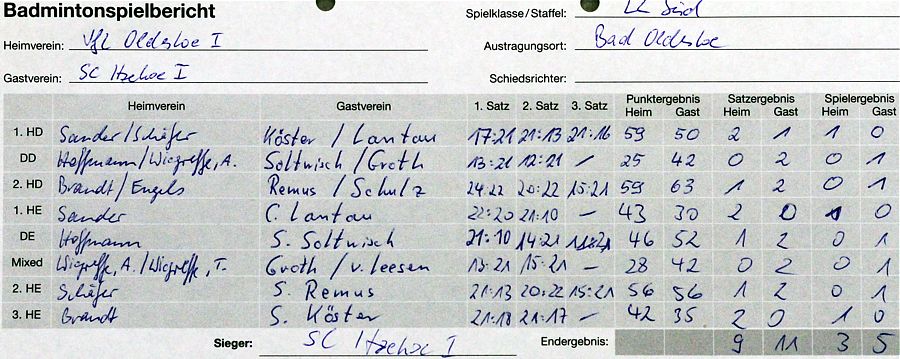 Badmintonspielbericht
Spielklasse/Staffel: LL Süd
Heimverein: VfL Oldesloe I
Austragungsort: Bad Oldesloe
Gastverein: SC Itzehoe I
Schiedsrichter:
Heimverein Gastverein 1. Satz 2. Satz 3. Satz Punktergebnis Heim Gast Satzergebnis Heim Gast Spielergebnis Heim Gast
1. HD Sander/Schäfer Köster / Lantau 17:21 21:13 21:16 59 50 2 1 1 0
DD Hoffmann/Wiegreffe, A. Soltwisch/Groth 13:21 12:21 – 25 42 0 2 0 1
2. HD Brandt/Engels Remus / Schulz 24:22 20:22 15:21 59 63 1 2 0 1
1. HE Sander C. Lantau 22:20 21:10 – 43 30 2 0 1 0
DE Hoffmann S. Soltwisch 21:10 14:21 11:21 46 52 1 2 0 1
Mixed Wiegreffe, A./Wiegreffe, T. Groth / v. Leesen 13:21 15:21 – 28 42 0 2 0 1
2. HE Schäfer S. Remus 21:13 20:22 15:21 56 56 1 2 0 1
3. HE Brandt S. Köster 21:18 21:17 – 42 35 2 0 1 0
Sieger: SC Itzehoe I Endergebnis: 9 11 3 5